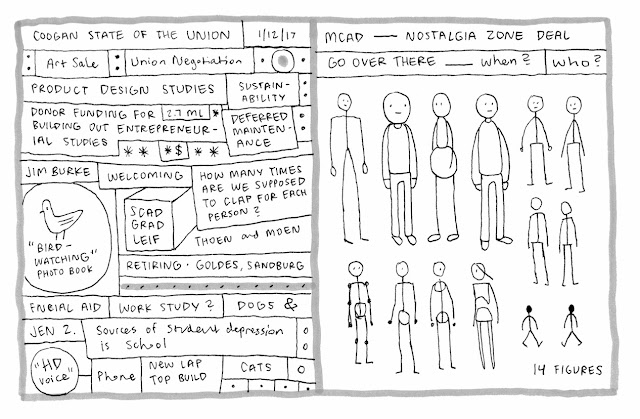 COOGAN STATE OF THE UNION
1/12/17
Art Sale
Union Negotiation
PRODUCT DESIGN STUDIES
SUSTAIN-
ABILITY
DONOR FUNDING FOR 2.7 ML *
BUILDING OUT ENTREPRENEUR-
IAL STUDIES
* * *$* *
DEFERRED
MAINTEN-
ANCE
JIM BURKE
WELCOMING
HOW MANY TIMES
ARE WE SUPPOSED
TO CLAP FOR EACH
PERSON?
"BIRD-
WATCHING"
PHOTO BOOK
SCAD
GRAD
LEIF
THOEN and MOEN
RETIRING · GOLDES, SANDBURG
AID
WORK STUDY?
DOGS &
JEN Z.
Sources of student depression
is school
"HD
voice"
Phone
NEW LAP
TOP BUILD
CATS
MCAD — NOSTALGIA ZONE DEAL
GO OVER THERE — when?
Who?
14 FIGURES